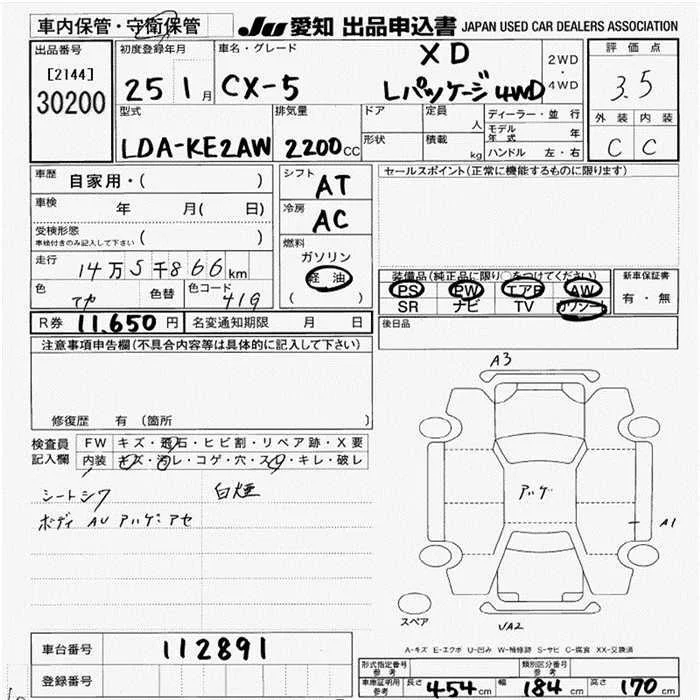 車内保管・守衛保管
JU 愛知 出品申込書 JAPAN USED CAR DEALERS ASSOCIATION
出品番号
[2144]
30200
初度登録年月
25 1月
車名・グレード
CX-5
XD
Lパッケージ 4WD
2WD
・
4WD
評価点
3.5
外装 内装
C C
型式
LDA-KE2AW
排気量
2200cc
ドア
形状
定員
人
積載
kg
ディーラー・並行
モデル年式 年
ハンドル 左・右
車歴
自家用・( )
車検
年 月( 日)
受検形態
車検付きのみ記入して下さい ( )
走行
14万5千866km
色 色替 色コード
41G
シフト
AT
冷房
AC
燃料
ガソリン
軽油
( )
セールスポイント(正常に機能するものに限ります)
装備品(純正品に限り○をつけてください)
PS PW エアB AW
SR ナビ TV カワシート
新車保証書
有・無
後日品
R券 11,650円 名変通知期限 月 日
注意事項申告欄(不具合内容等は具体的に記入して下さい)
修復歴 有 (箇所 )
検査員
記入欄
FW キズ・飛石・ヒビ割・リペア跡・X要
内装 キズ・汚レ・コゲ・穴・スレ・キレ・破レ
シートシワ 白煙
ボディ AU アハゲ アセ
A3
アハゲ
A1
スペア
UA2
A-キズ E-エクボ U-凹み W-補修跡 S-サビ C-腐食 XX-交換済
車台番号 112891
登録番号
形式指定番号 参考
類別区分番号 参考
車庫証明用 参考 長さ 454cm 幅 184cm 高さ 170cm